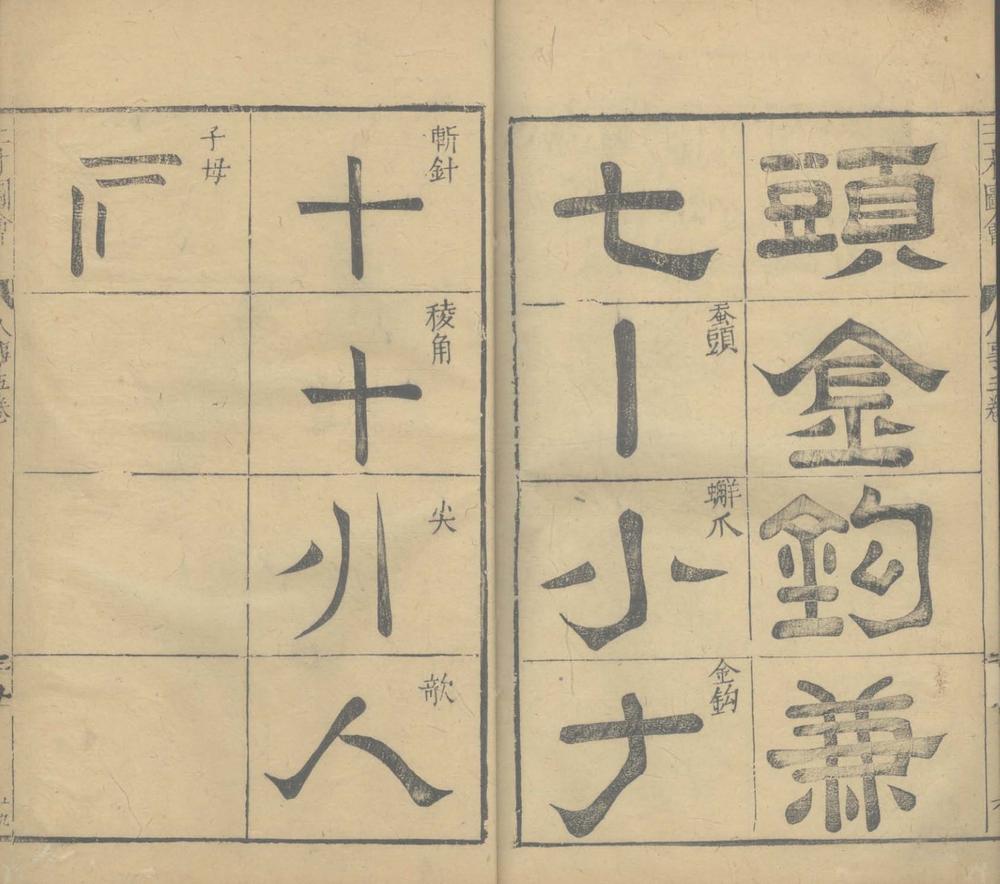 三才圖會
頭
金
鈎
兼
七
蚕頭
丨
蠏爪
小
金鈎
斬針
十
稜角
十
尖
歃
人
子母
三才圖會
人事五卷